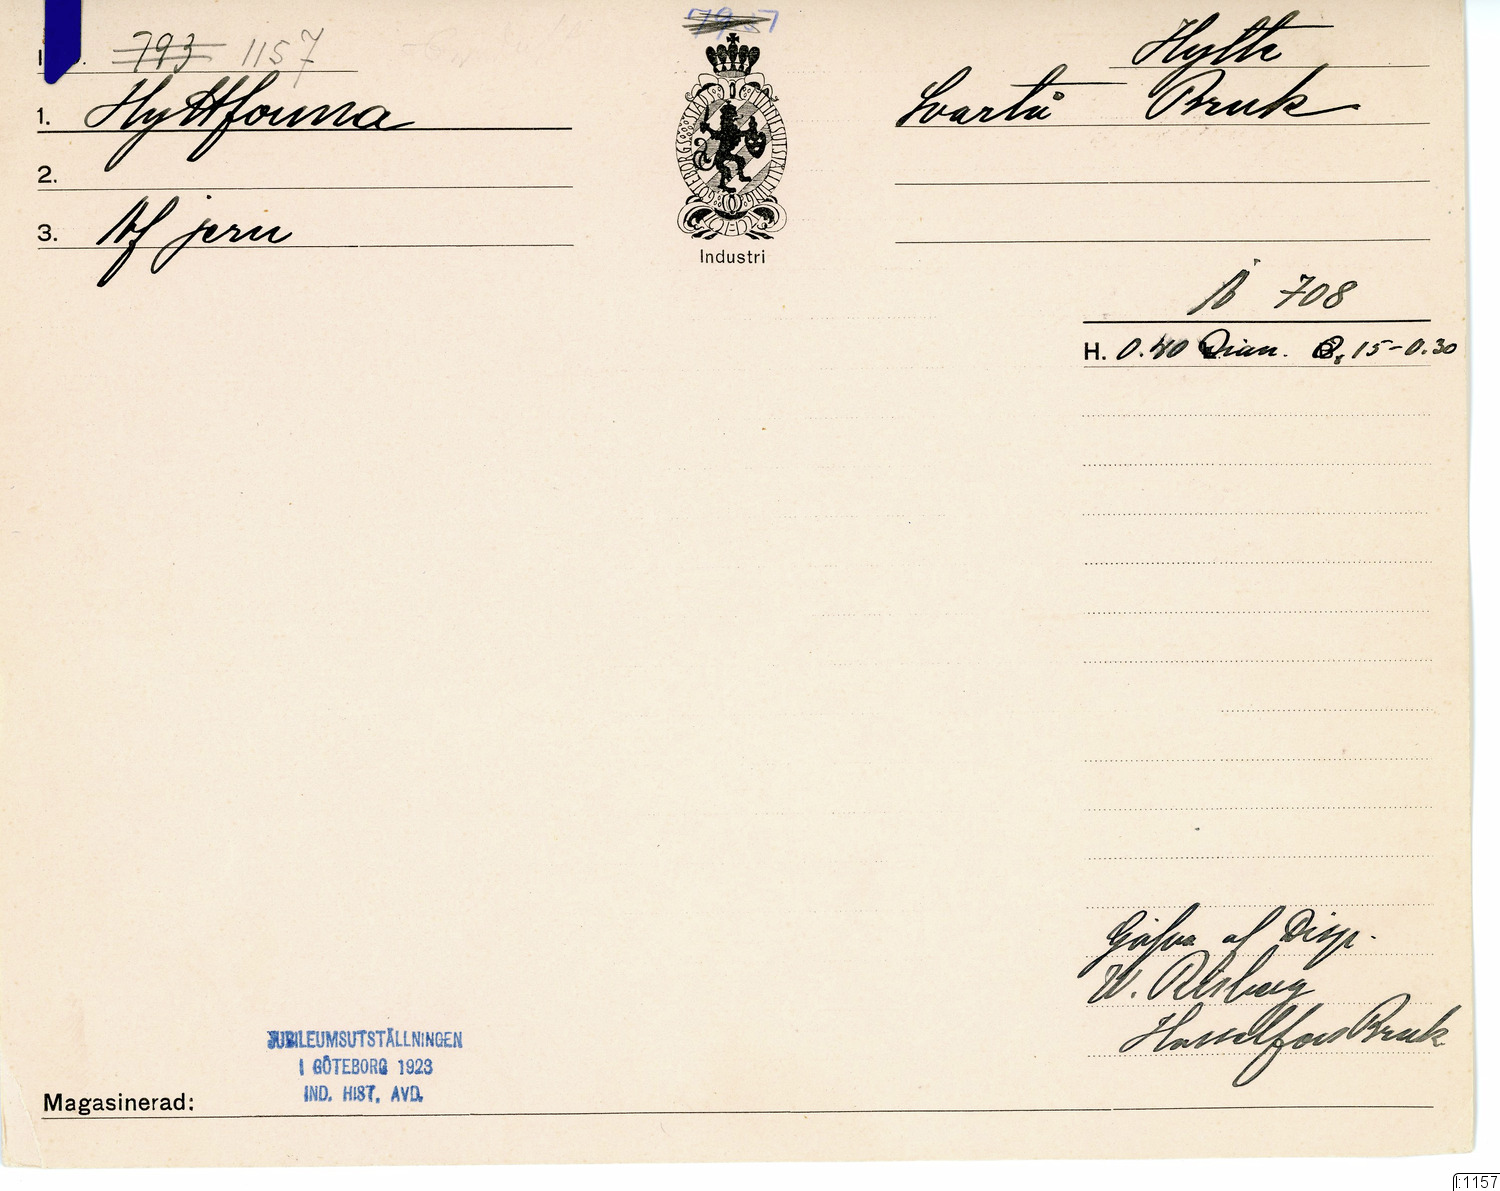 793 1157
Hylte
1. Hyttforma
Svartå Bruk
2.
3. Af jern
GÖTEBORGS STADS JUBILEUMSUTSTÄLLNING
Industri
Å 708
H. 0.40 Diam. 0,15-0.30
Gåfva af Disp.
W.
Hasselfors Bruk
JUBILEUMSUTSTÄLLNINGEN
I GÖTEBORG 1923
IND. HIST. AVD.
Magasinerad:
I:1157